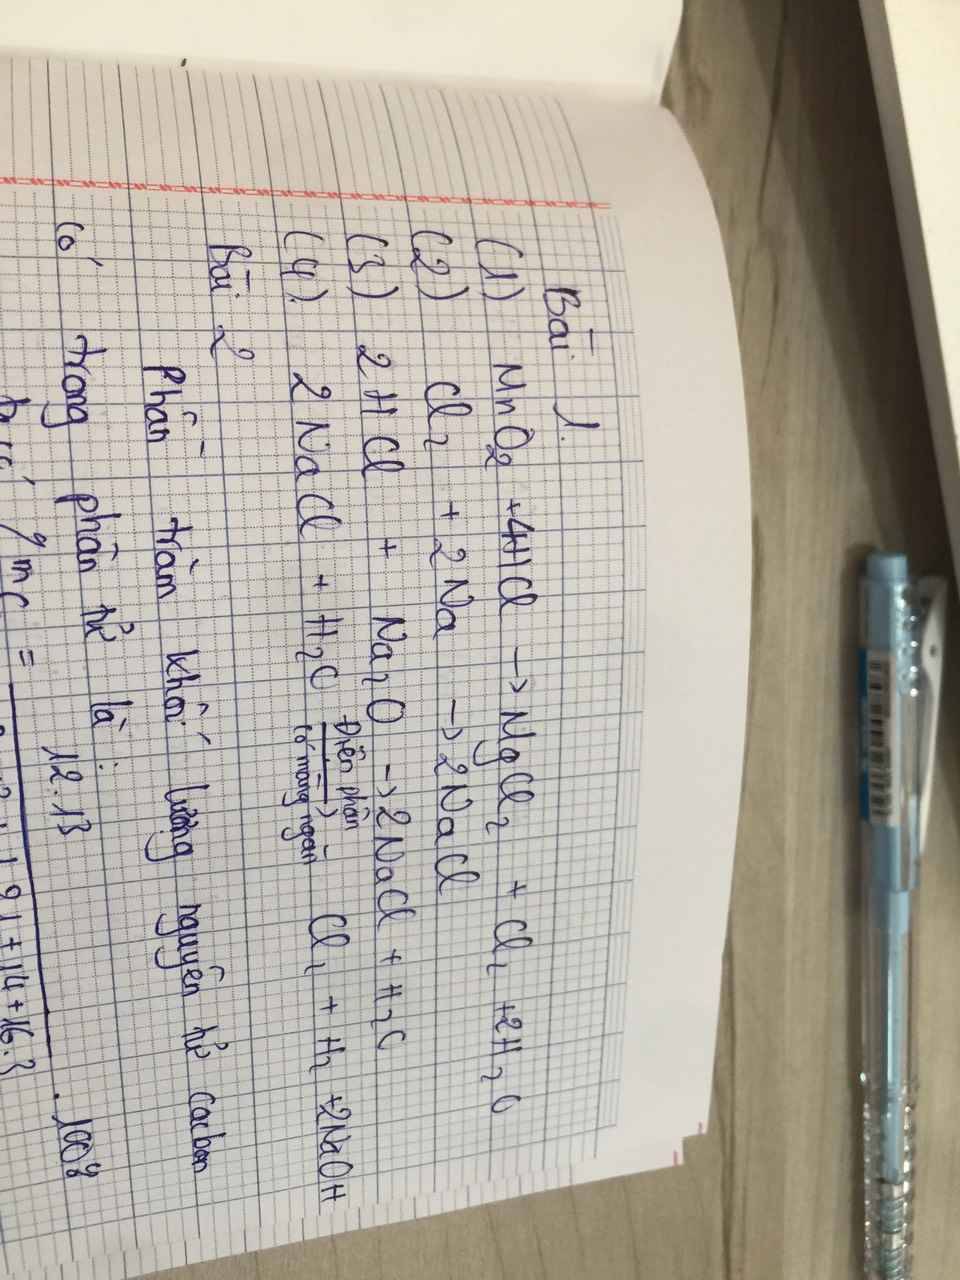 Bài 1.
(1) MnO2 +4HCl → MgCl2 + Cl2 +2H2O
(2) Cl2 + 2Na → 2NaCl
(3) 2HCl + Na2O → 2NaCl + H2O
(4). 2NaCl + H2O Điện phân có màng ngăn → Cl2 + H2 +2NaOH
Bài 2
Phần trăm khối lượng nguyên tử cacbon
có trong phân tử là:
%mC = 12.13 .100%
+ 14 + 16.3